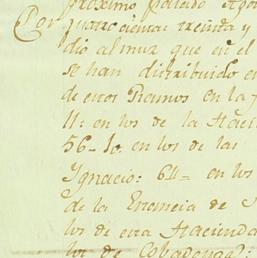 proximo pasado Ago
Por quatrocientas treinta y
dio al mux que en el
se han distribuido en
de estos Ramos en la
11= en los de la Haci
56-10. en los de las
Ignacio: 611= en los
de la Eremcia de
los de esta Hacienda
los de Cobadonga: